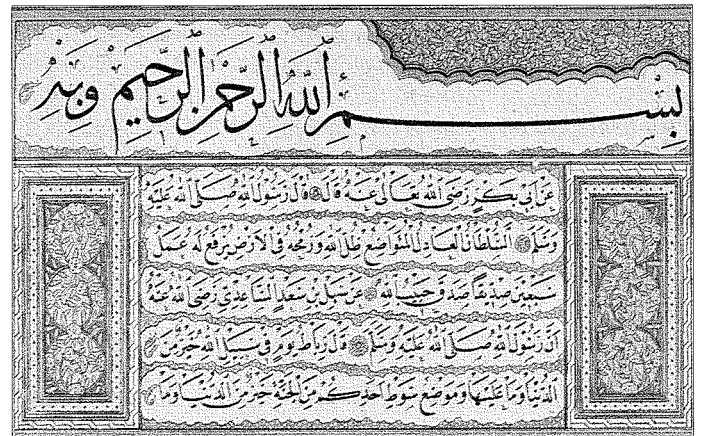 بِسْمِ اللهِ الرَّحْمٰنِ الرَّحِيْمِ وَبِهِ
عَنْ اَبِى بَكْرٍ رَضِىَ اللهُ تَعَالٰى عَنْهُ قَالَ قَالَ رَسُولُ اللهِ صَلَّى اللهُ عَلَيْهِ
وَسَلَّمَ اَلسُّلْطَانُ الْعَادِلُ الْمُتَوَاضِعُ ظِلُّ اللهِ وَرُمْحُهُ فِى الْاَرْضِ يُرْفَعُ لَهُ عَمَلُ
سَبْعِينَ صِدِّيقًا صَدَقَ حَبِيبُ اللهِ عَنْ سَهْلِ بْنِ سَعْدٍ السَّاعِدِىِّ رَضِىَ اللهُ عَنْهُ
اَنَّ رَسُولَ اللهِ صَلَّى اللهُ عَلَيْهِ وَسَلَّمَ قَالَ رِبَاطُ يَوْمٍ فِى سَبِيلِ اللهِ خَيْرٌ مِنَ
الدُّنْيَا وَمَا عَلَيْهَا وَمَوْضِعُ سَوْطِ اَحَدِكُمْ مِنَ الْجَنَّةِ خَيْرٌ مِنَ الدُّنْيَا وَمَا